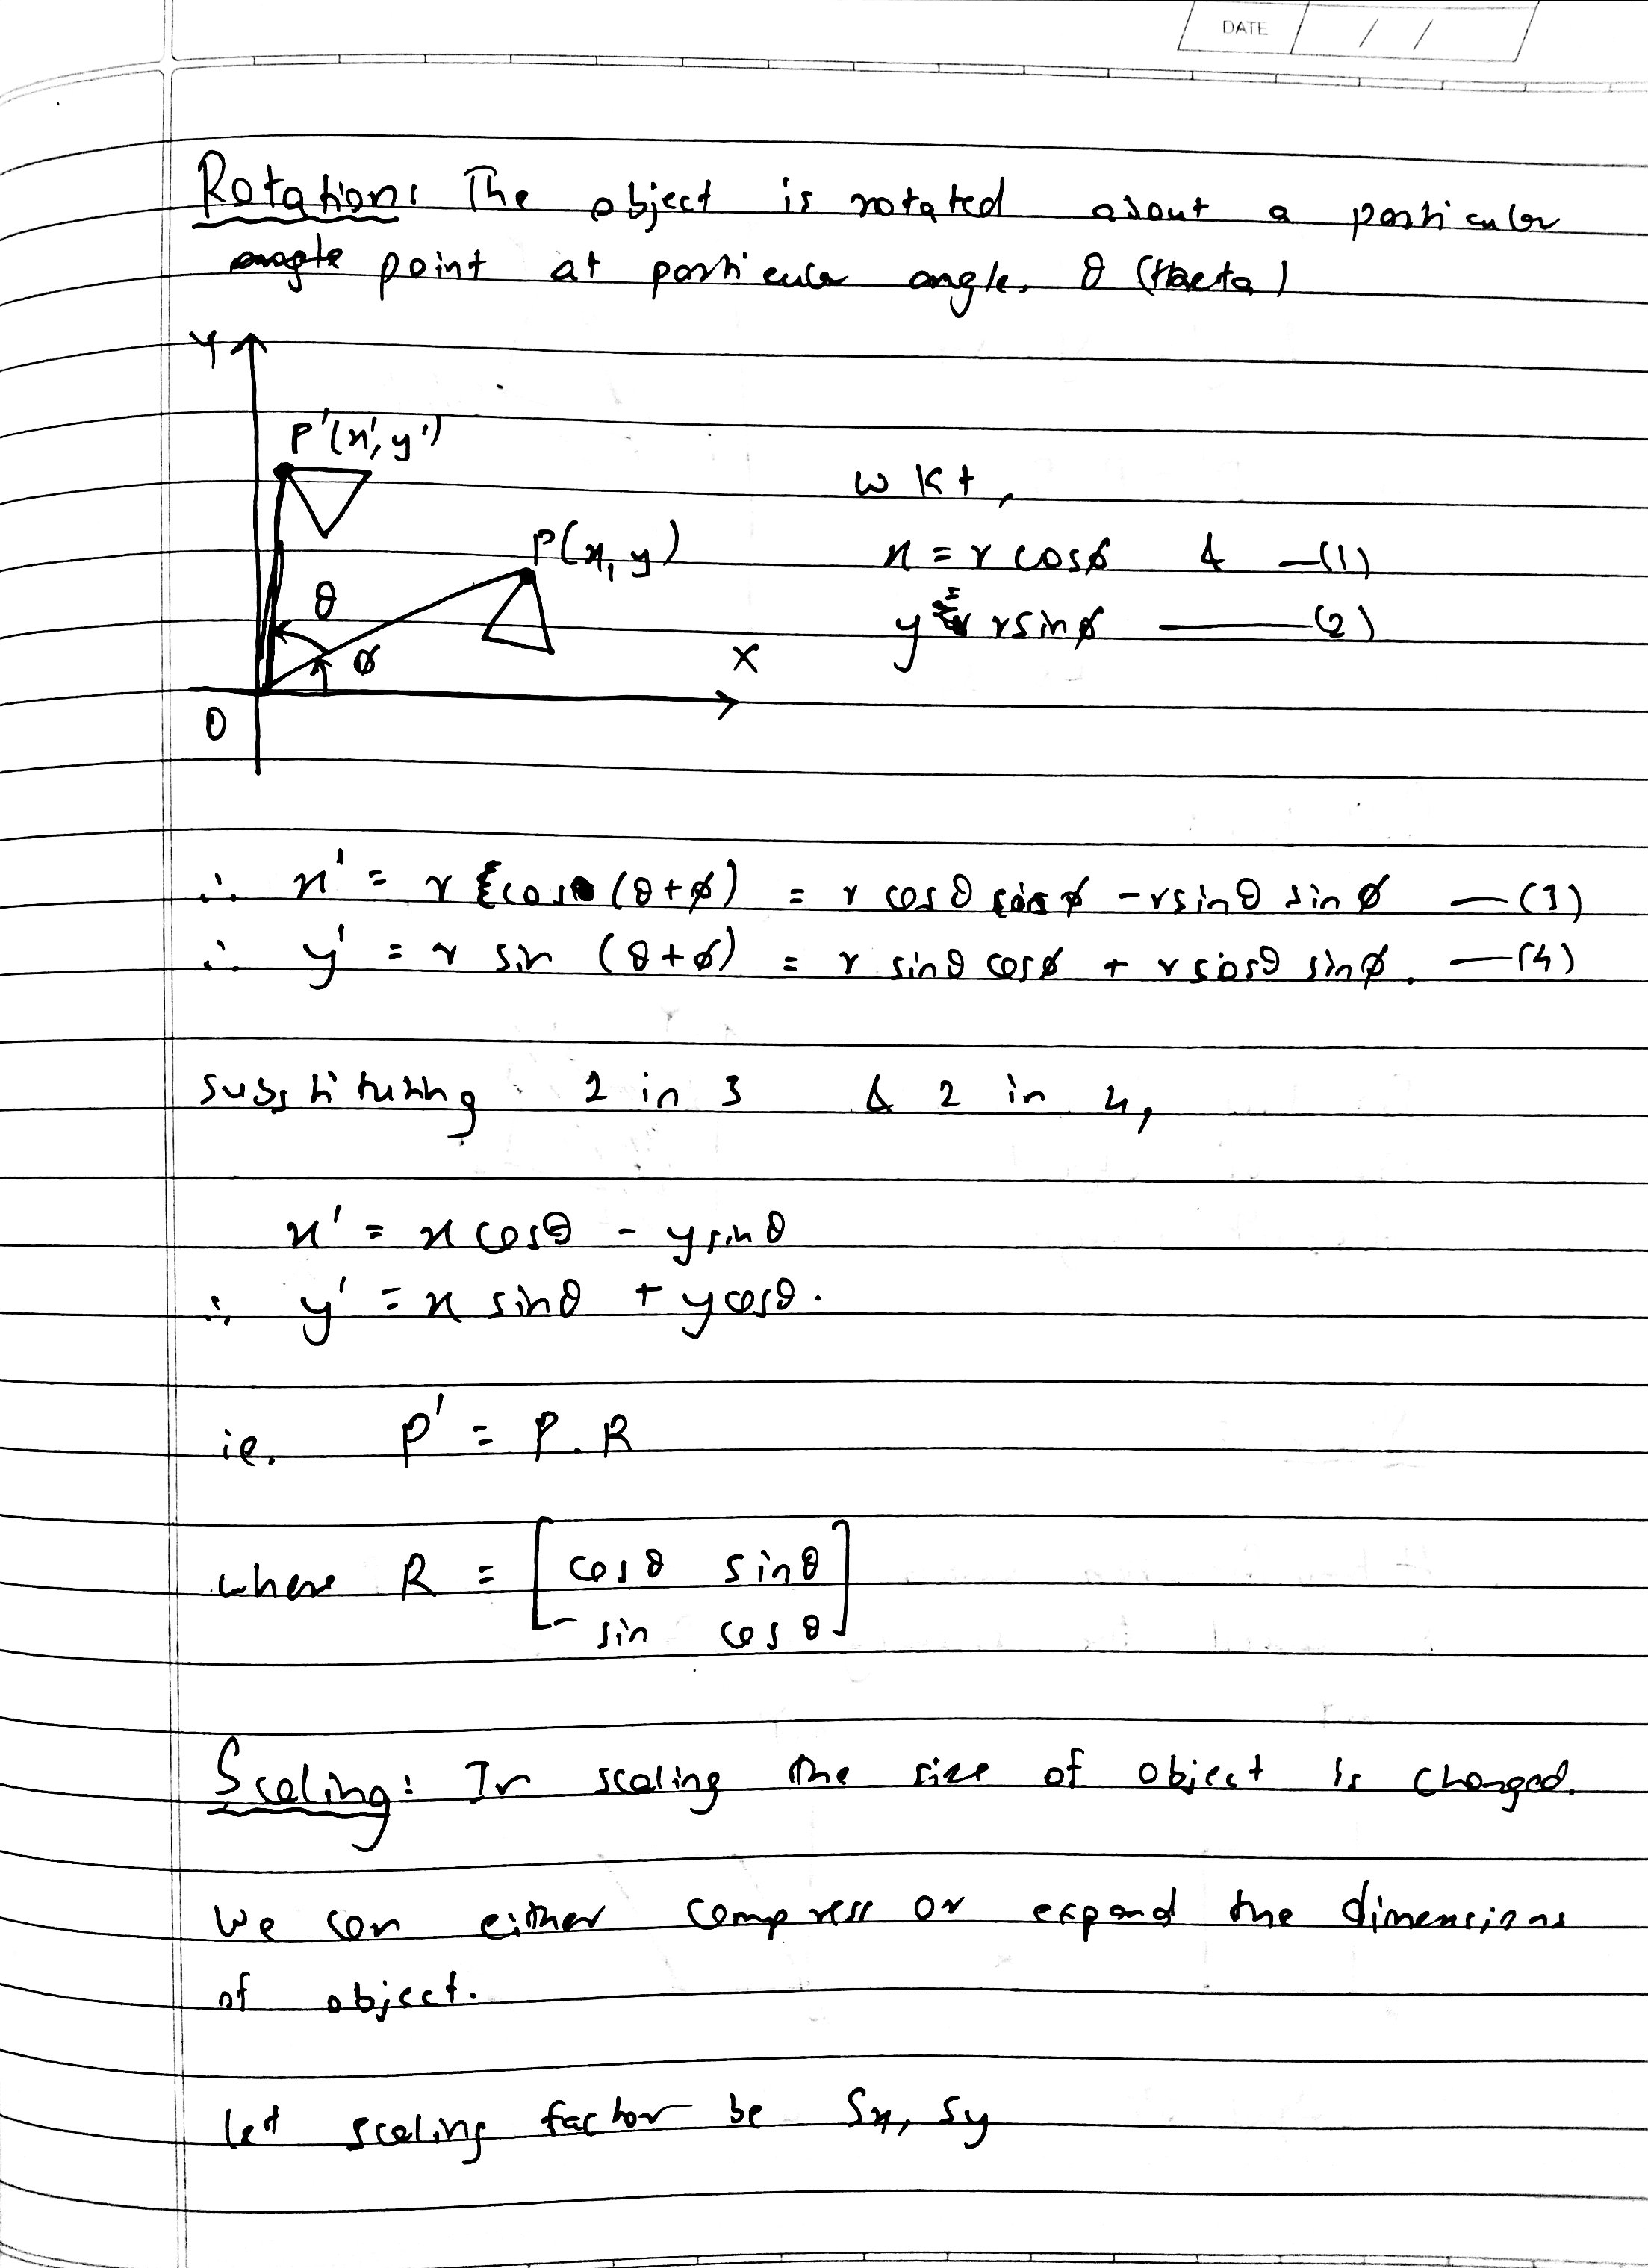 DATE / /
Rotation: The object is rotated about a particular
angle point at particular angle. θ (thaeta)
Y
P'(x', y')
wkt,
P(x, y)
x = r cosϕ & —(1)
θ
y = r sinϕ ——(2)
ϕ
X
O
∴ x' = r cos (θ+ϕ) = r cosθ cosϕ - r sinθ sinϕ —(3)
∴ y' = r sin (θ+ϕ) = r sinθ cosϕ + r cosθ sinϕ. —(4)
substituting 1 in 3 & 2 in 4,
x' = x cosθ - y sinθ
∴ y' = x sinθ + y cosθ.
ie. P' = P . R
where R = [ cosθ sinθ
- sin cosθ ]
Scaling: In scaling the size of object is changed.
We can either compress or expand the dimensions
of object.
let scaling factor be Sx, Sy